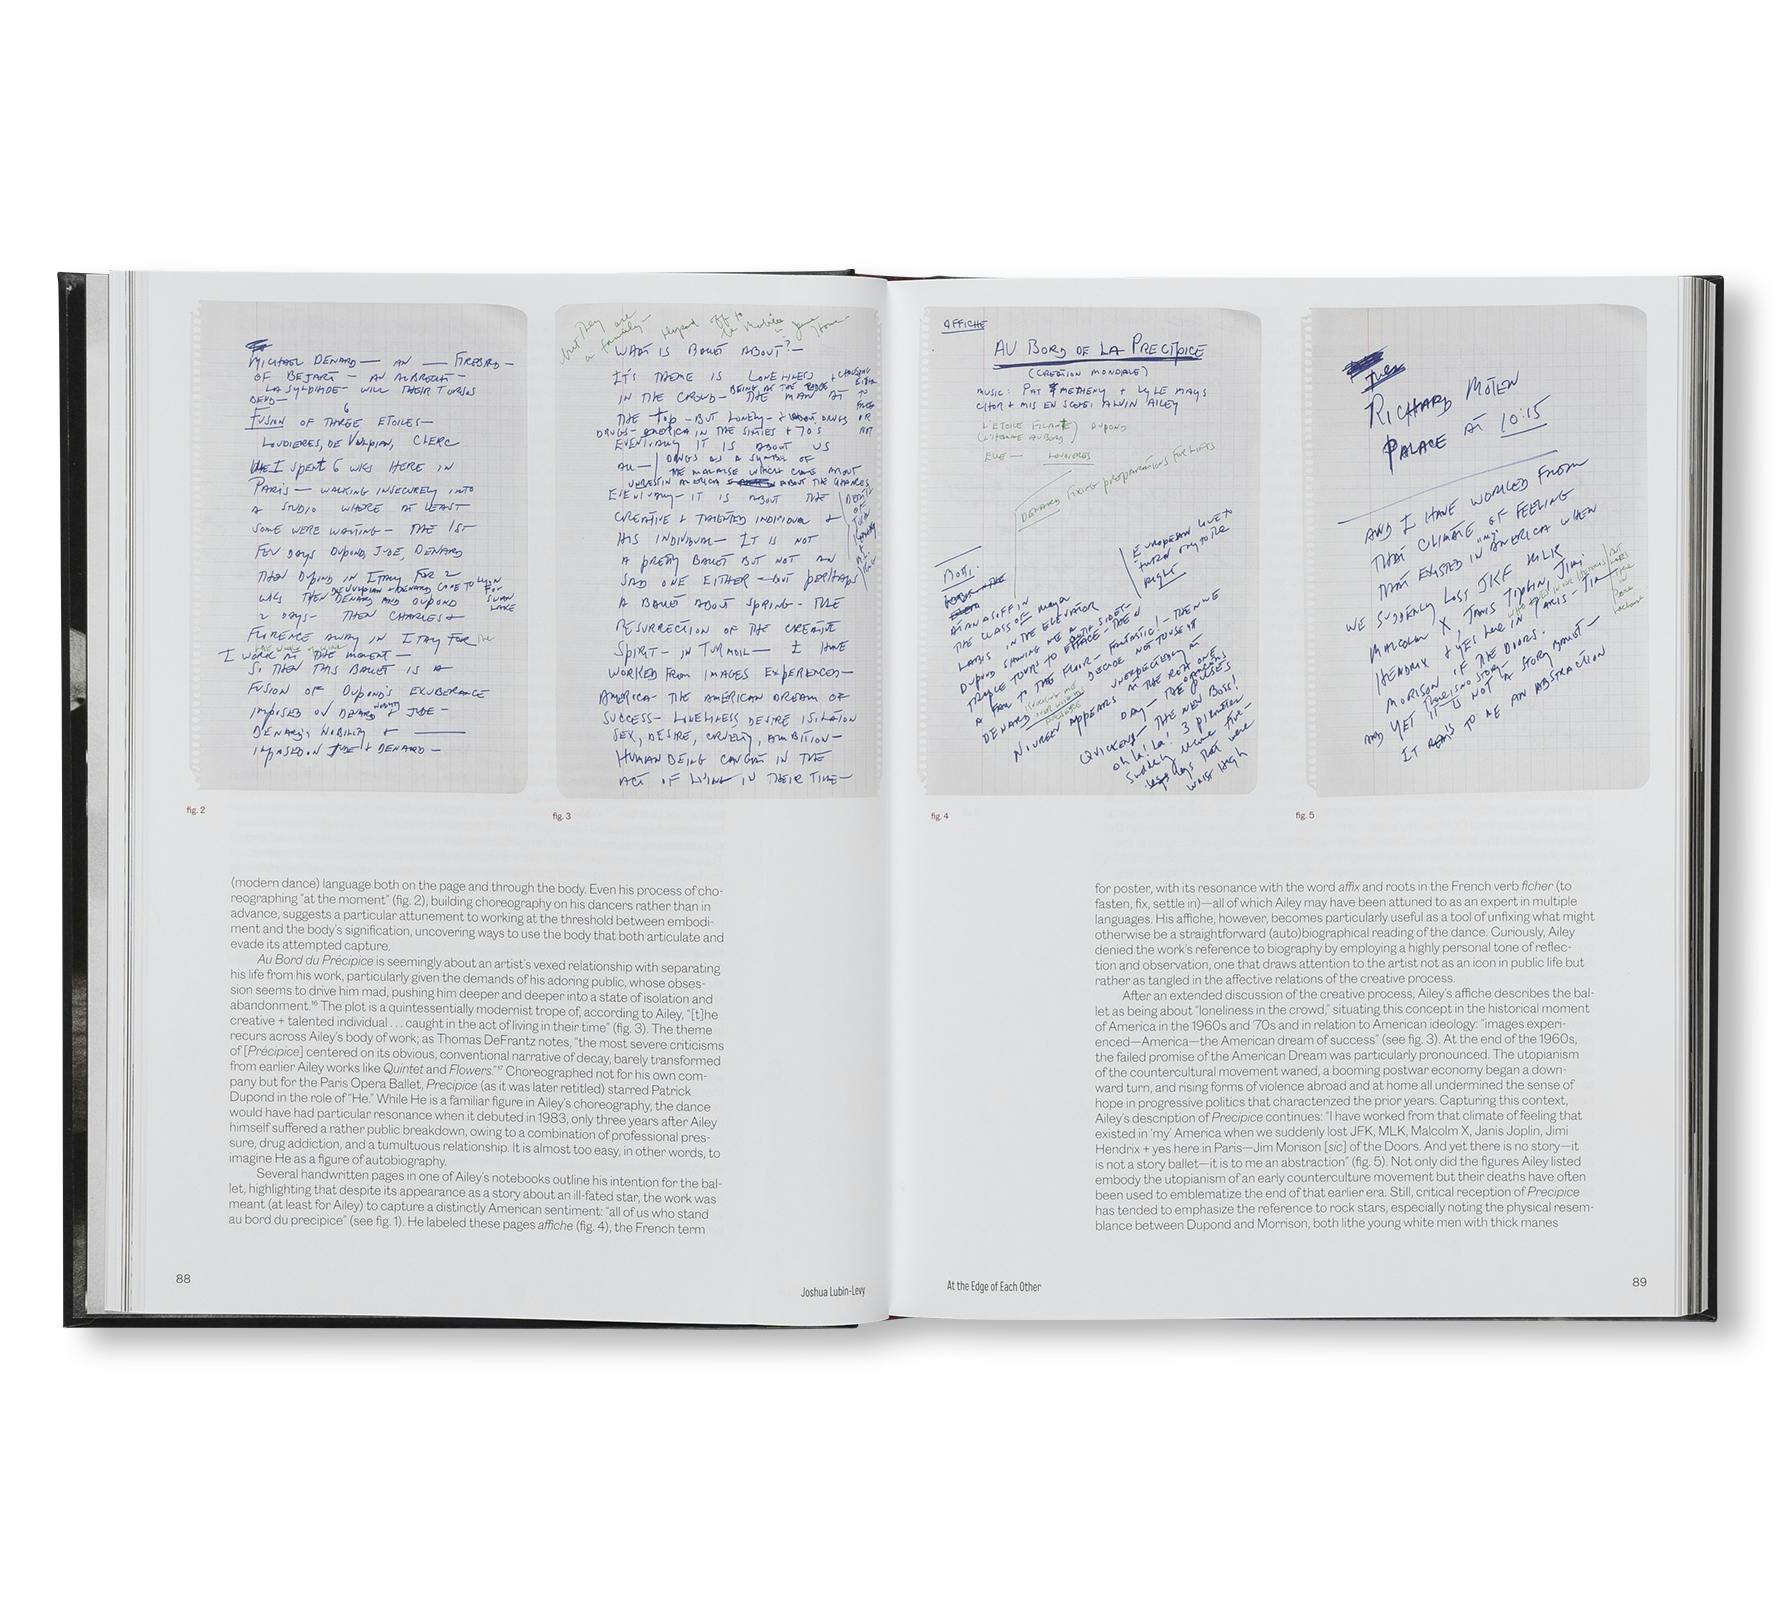 MICHAEL DENARD — AN — FIREBIRD —
OF BEJART — AN ALBRECHT —
LA SYLPHIDE — WILL THEIR TORSOS
BEND —
6
FUSION OF THREE ETOILES —
LOUDIERES, DE VULPIAN, CLERC
I SPENT 6 WKS HERE IN
PARIS — WALKING INSECURELY INTO
A STUDIO WHERE AT LEAST
SOME WERE WAITING — THE 1ST
FEW DAYS DUPOND, JUDE, DENARD
THEN DUPOND IN ITALY FOR 2
WKS THEN DENARD AND DUPOND
2 DAYS — THEN CHARLES +
FLORENCE AWAY IN ITALY FOR the
I WORK AT THE MOMENT —
SO THEN THIS BALLET IS A
FUSION OF DUPOND'S EXUBERANCE
IMPOSED ON DENARD JUDE —
DENARD'S NOBILITY +
IMPOSED ON JUDE + DENARD —
fig. 2
but they are
a family —
WHAT IS BALLET ABOUT? —
IT'S THEME IS LONELINESS
IN THE CROWD — THE MAN AT
THE TOP — BUT LONELY —
DRUGS — AMERICA IN THE SIXTIES + 70'S
EVENTUALLY IT IS ABOUT US
ALL — DRUGS AS A SYMBOL OF
THE MALAISE WHICH CAME ABOUT
UNREST IN AMERICA ABOUT THE CHANGES
EVENTUALLY — IT IS ABOUT THE
CREATIVE + TALENTED INDIVIDUAL +
HIS INDIVIDUAL — IT IS NOT
A PRETTY BALLET BUT NOT AN
SAD ONE EITHER — BUT PERHAPS
A BALLET ABOUT SPRING — THE
RESURRECTION OF THE CREATIVE
SPIRIT — IN TURMOIL — I HAVE
WORKED FROM IMAGES EXPERIENCED —
AMERICA — THE AMERICAN DREAM OF
SUCCESS — LONELINESS DESIRE ISOLATION
SEX, DESIRE, CRUELTY, AMBITION —
HUMAN BEING CAUGHT IN THE
ACT OF LIVING IN THEIR TIME —
fig. 3
AFFICHE
AU BORD DE LA PRECIPICE
(CREATION MONDIALE)
MUSIC: PAT METHENY + LYLE MAYS
CHOR + MIS EN SCENE: ALVIN AILEY
L'ETOILE FILANTE) DUPOND
(L'HOMME AU BORD)
ELLE — LOUDIERES
DENARD fixing preparations for lifts
EUROPEANS LOVE TO
TURN ONLY TO THE
RIGHT
ATANASOFF IN
THE CLASS OF Maya
LATER IN THE ELEVATOR
DUPOND SHOWING ME A
TRIPLE TOURS TO EFFACE — THEN
A FALL TO THE FLOOR — FANTASTIC! — THEN WE
DECIDE NOT TO USE IT
DENARD UNEXPECTEDLY
NUREEV APPEARS DAY — AT THE REAR ONE
THE PULSES
QUICKENS — THE NEW BOSS!
Oh la! la! 3 pirouettes
Suddenly became five —
legs that were
waist high
fig. 4
RICHARD MOTEN
PALACE AT 10:15
AND I HAVE WORKED FROM
THAT CLIMATE OF FEELING
THAT EXISTED IN "MY" AMERICA WHEN
WE SUDDENLY LOSS JFK MLK
MALCOLM X, JANIS JOPLIN, JIMI
HENDRIX + YES here IN PARIS — JIM
MORISON OF THE DOORS.
AND YET There is no story —
IT IS NOT A STORY BALLET —
IT IS TO ME AN ABSTRACTION
fig. 5
(modern dance) language both on the page and through the body. Even his process of cho-
reographing "at the moment" (fig. 2), building choreography on his dancers rather than in
advance, suggests a particular attunement to working at the threshold between embodi-
ment and the body's signification, uncovering ways to use the body that both articulate and
evade its attempted capture.
Au Bord du Précipice is seemingly about an artist's vexed relationship with separating
his life from his work, particularly given the demands of his adoring public, whose obses-
sion seems to drive him mad, pushing him deeper and deeper into a state of isolation and
abandonment.16 The plot is a quintessentially modernist trope of, according to Ailey, "[t]he
creative + talented individual . . . caught in the act of living in their time" (fig. 3). The theme
recurs across Ailey's body of work; as Thomas DeFrantz notes, "the most severe criticisms
of [Précipice] centered on its obvious, conventional narrative of decay, barely transformed
from earlier Ailey works like Quintet and Flowers."17 Choreographed not for his own com-
pany but for the Paris Opera Ballet, Precipice (as it was later retitled) starred Patrick
Dupond in the role of "He." While He is a familiar figure in Ailey's choreography, the dance
would have had particular resonance when it debuted in 1983, only three years after Ailey
himself suffered a rather public breakdown, owing to a combination of professional pres-
sure, drug addiction, and a tumultuous relationship. It is almost too easy, in other words, to
imagine He as a figure of autobiography.
Several handwritten pages in one of Ailey's notebooks outline his intention for the bal-
let, highlighting that despite its appearance as a story about an ill-fated star, the work was
meant (at least for Ailey) to capture a distinctly American sentiment: "all of us who stand
au bord du precipice" (see fig. 1). He labeled these pages affiche (fig. 4), the French term
88
Joshua Lubin-Levy
for poster, with its resonance with the word affix and roots in the French verb ficher (to
fasten, fix, settle in)—all of which Ailey may have been attuned to as an expert in multiple
languages. His affiche, however, becomes particularly useful as a tool of unfixing what might
otherwise be a straightforward (auto)biographical reading of the dance. Curiously, Ailey
denied the work's reference to biography by employing a highly personal tone of reflec-
tion and observation, one that draws attention to the artist not as an icon in public life but
rather as tangled in the affective relations of the creative process.
After an extended discussion of the creative process, Ailey's affiche describes the bal-
let as being about "loneliness in the crowd," situating this concept in the historical moment
of America in the 1960s and '70s and in relation to American ideology: "images experi-
enced—America—the American dream of success" (see fig. 3). At the end of the 1960s,
the failed promise of the American Dream was particularly pronounced. The utopianism
of the countercultural movement waned, a booming postwar economy began a down-
ward turn, and rising forms of violence abroad and at home all undermined the sense of
hope in progressive politics that characterized the prior years. Capturing this context,
Ailey's description of Precipice continues: "I have worked from that climate of feeling that
existed in 'my' America when we suddenly lost JFK, MLK, Malcolm X, Janis Joplin, Jimi
Hendrix + yes here in Paris—Jim Morison [sic] of the Doors. And yet there is no story—it
is not a story ballet—it is to me an abstraction" (fig. 5). Not only did the figures Ailey listed
embody the utopianism of an early counterculture movement but their deaths have often
been used to emblematize the end of that earlier era. Still, critical reception of Precipice
has tended to emphasize the reference to rock stars, especially noting the physical resem-
blance between Dupond and Morrison, both lithe young white men with thick manes
At the Edge of Each Other
89